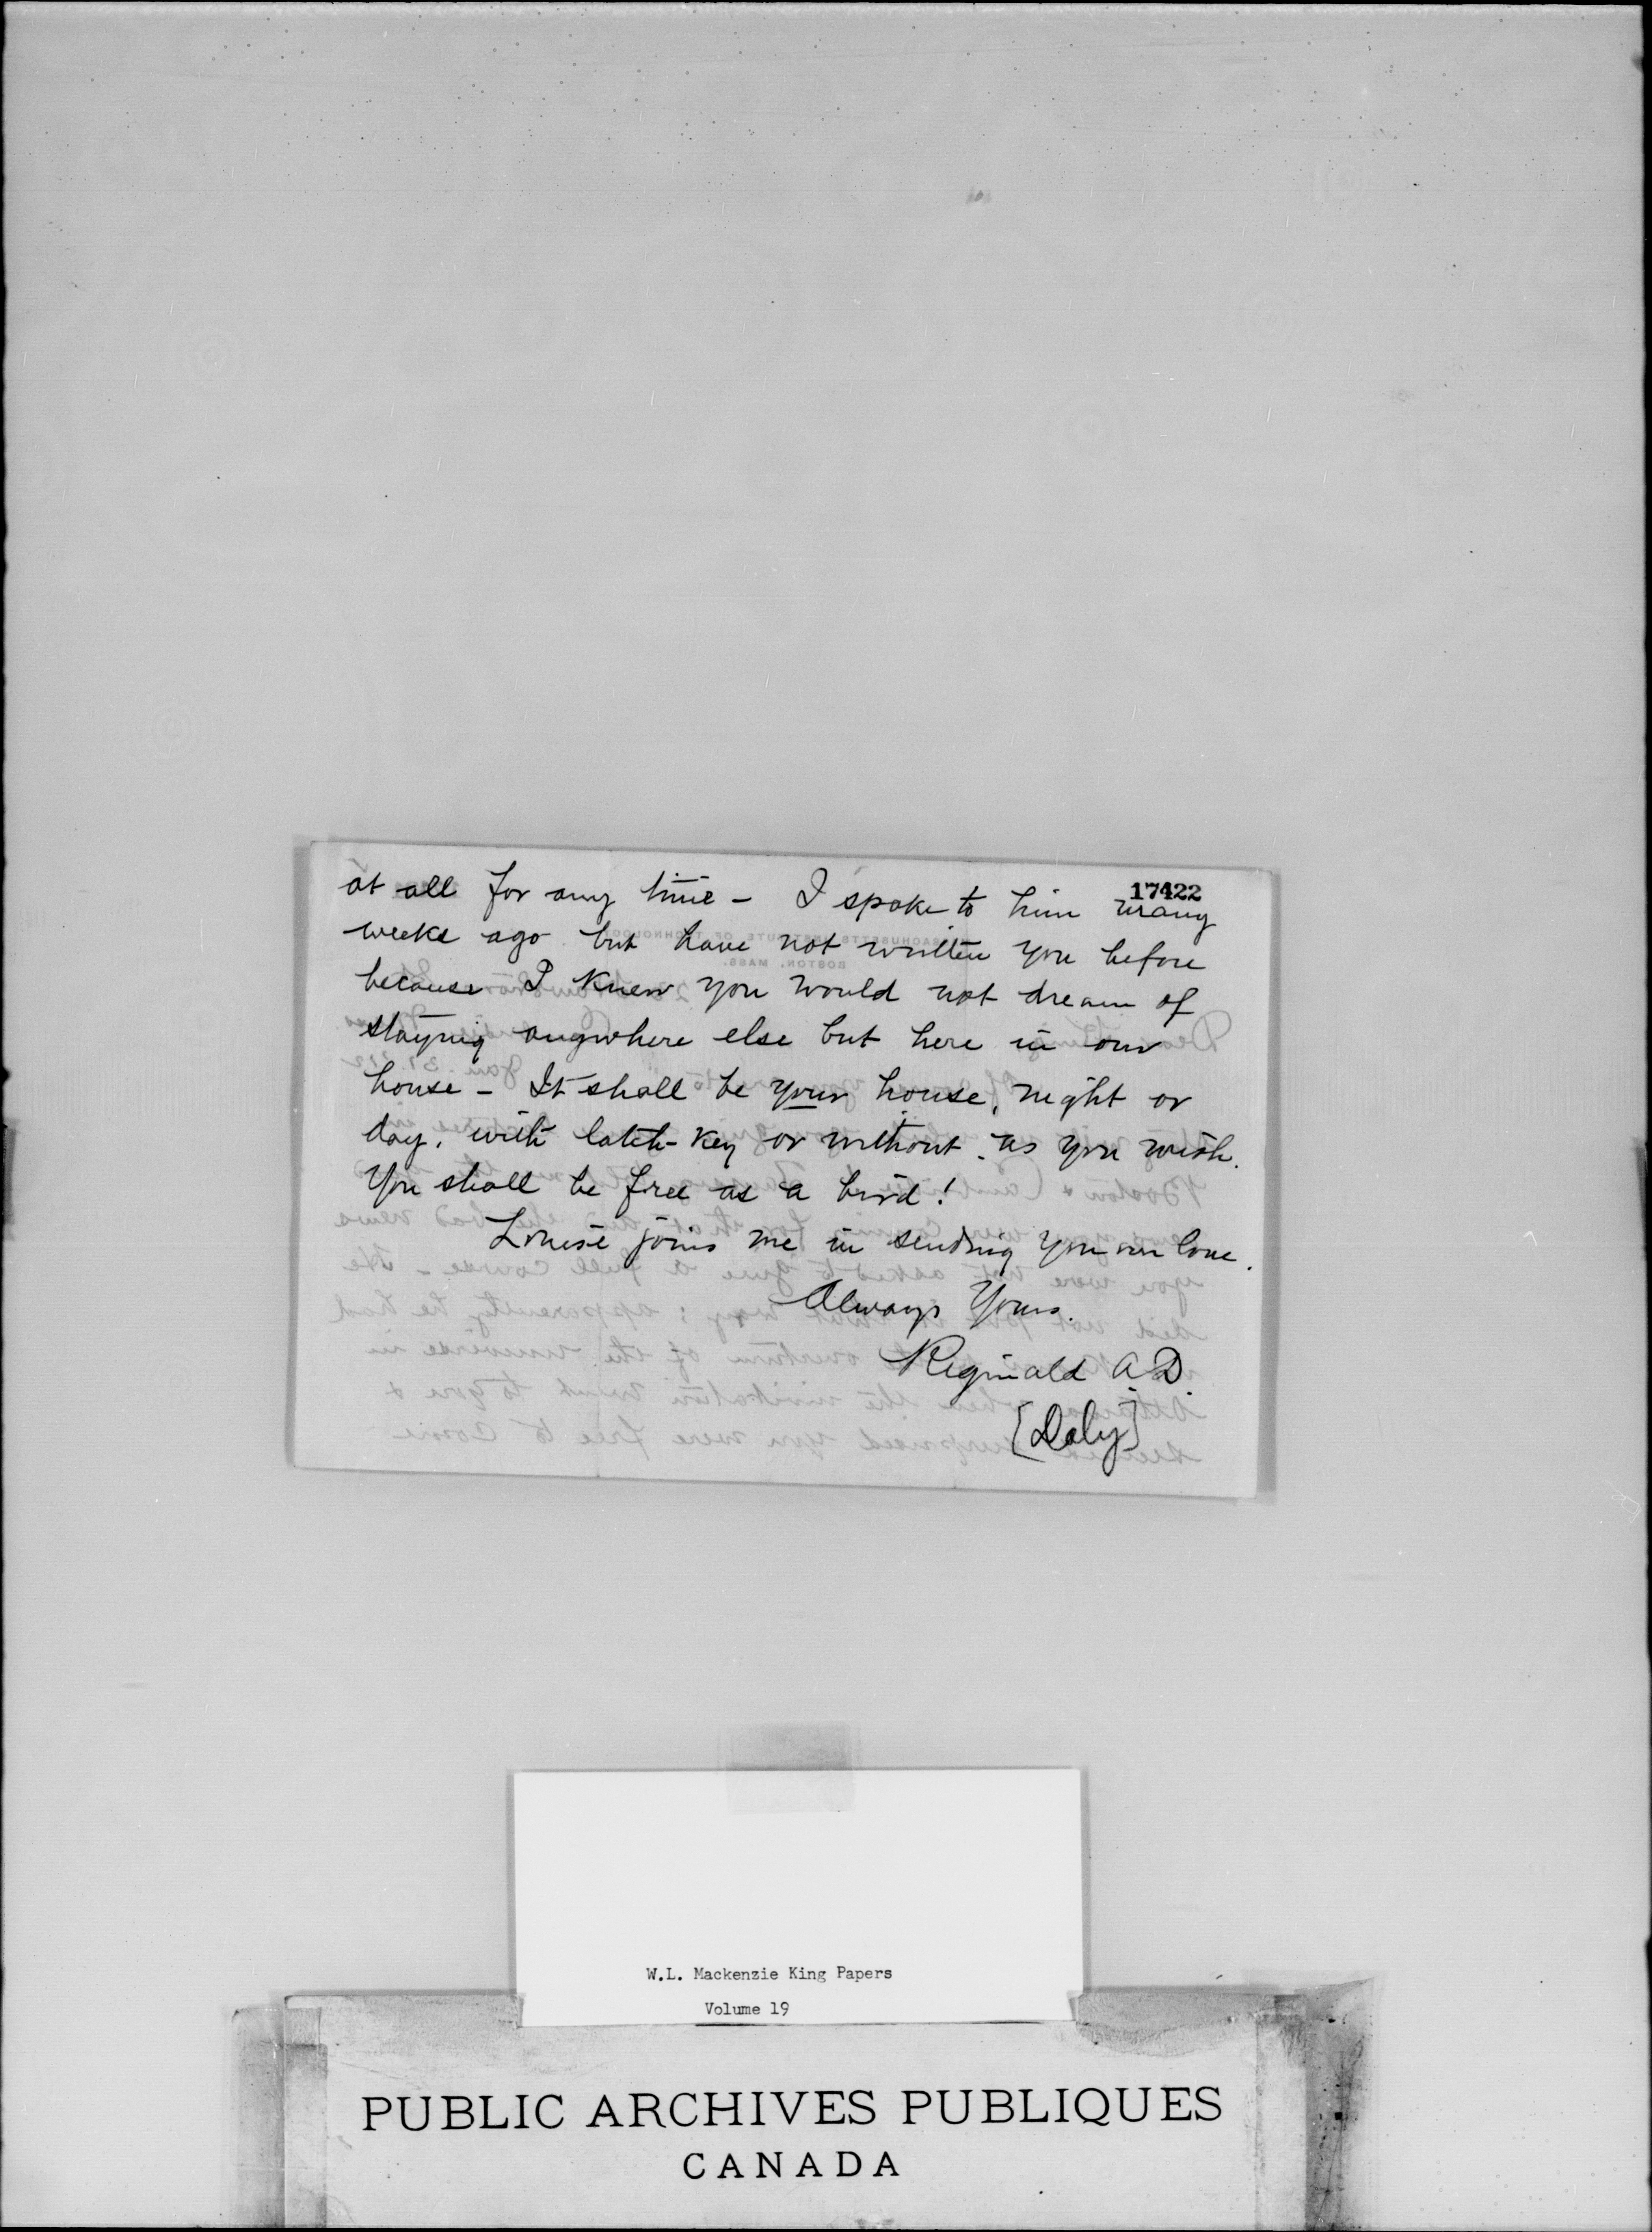 17422
at all for any time - I spoke to him many
weeks ago but have not written you before
because I knew you would not dream of
staying anywhere else but here in our
house - It shall be your house, night or
day, with latch-key or without, as you wish.
You shall be free as a bird!
Louise joins me in sending you our love.
Always Yours.
Reginald A. D.
[Daly]
W.L. Mackenzie King Papers
Volume 19
PUBLIC ARCHIVES PUBLIQUES
CANADA